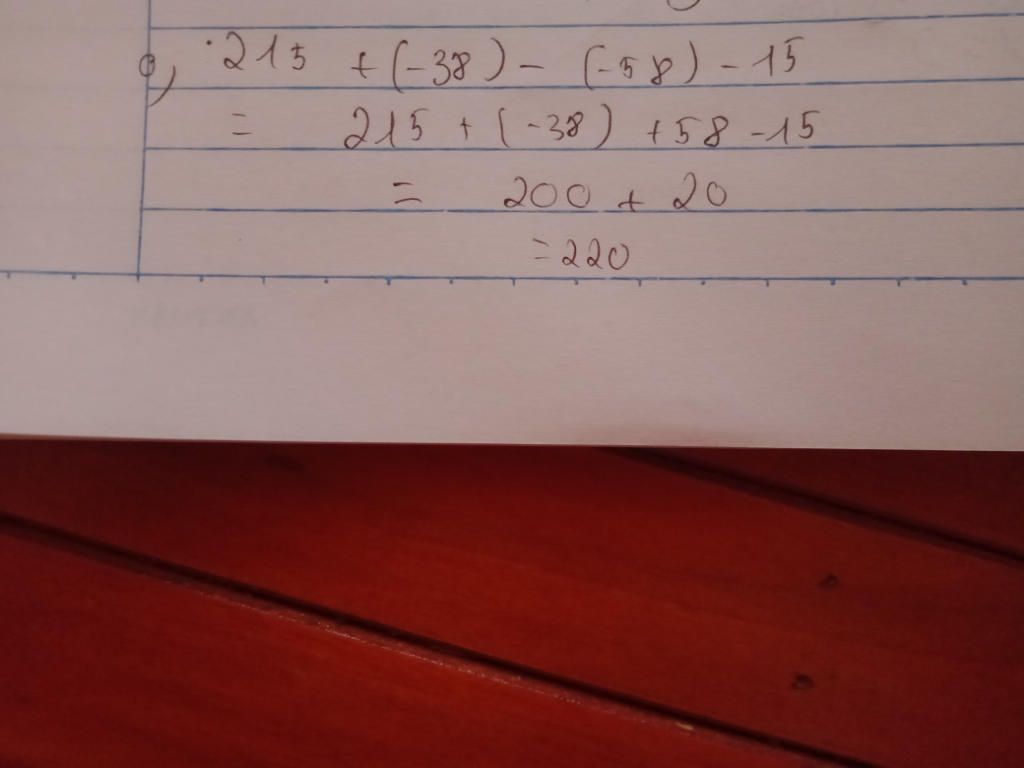 e, 215 + (-38) - (-58) - 15
= 215 + (-38) + 58 - 15
= 200 + 20
= 220